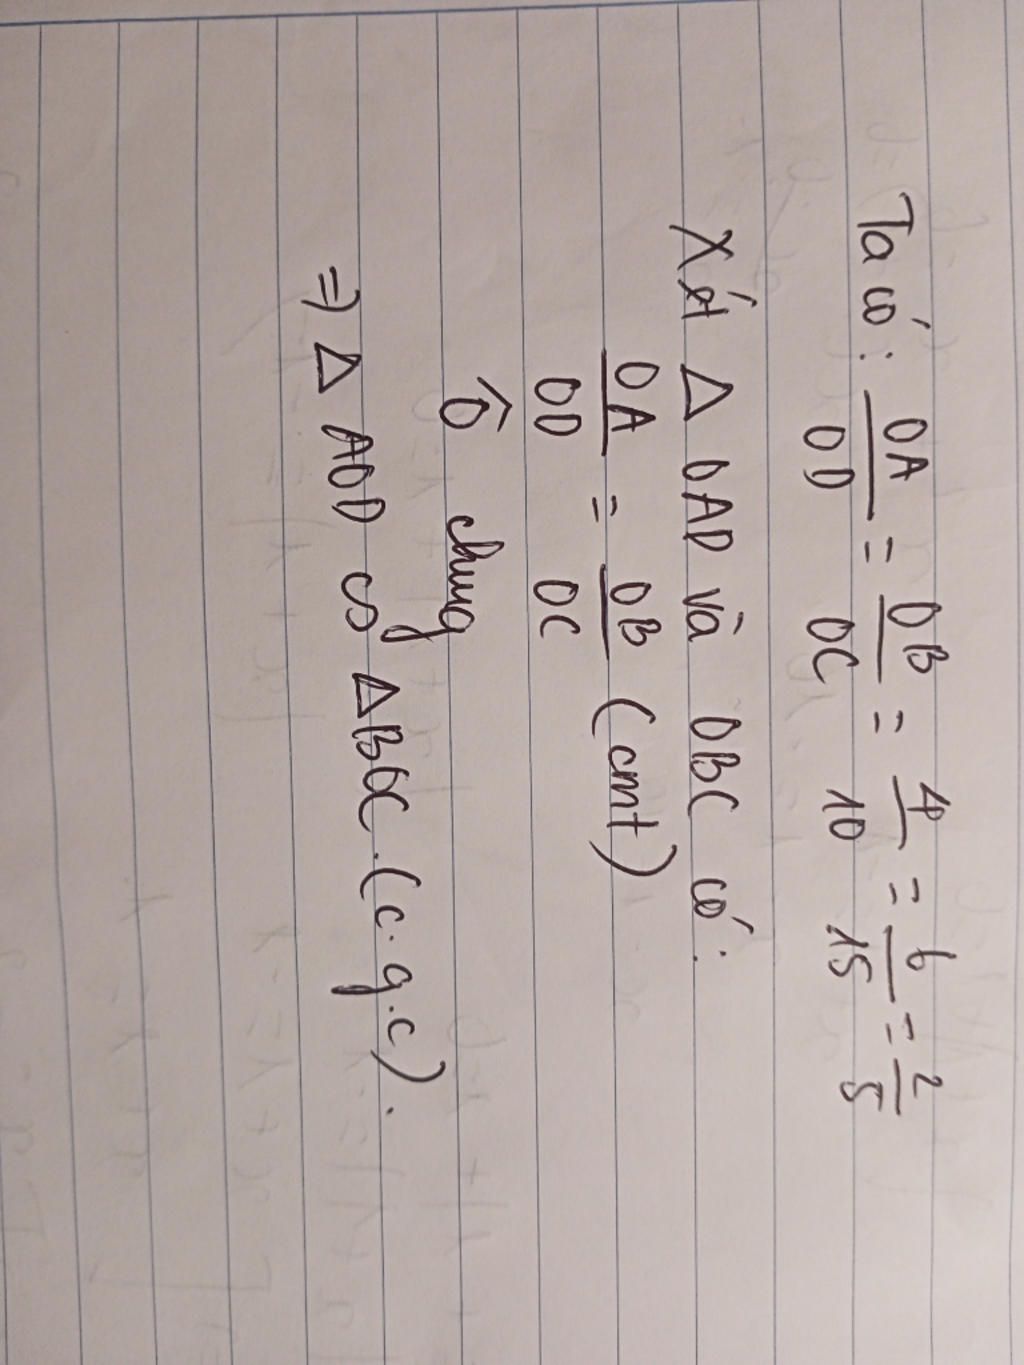 Ta có: OA/OD = OB/OC = 4/10 = 6/15 = 2/5
Xét Δ OAD và OBC có:
OA/OD = OB/OC (cmt)
Ô chung
=> Δ AOD ∽ ΔBOC (c.g.c).